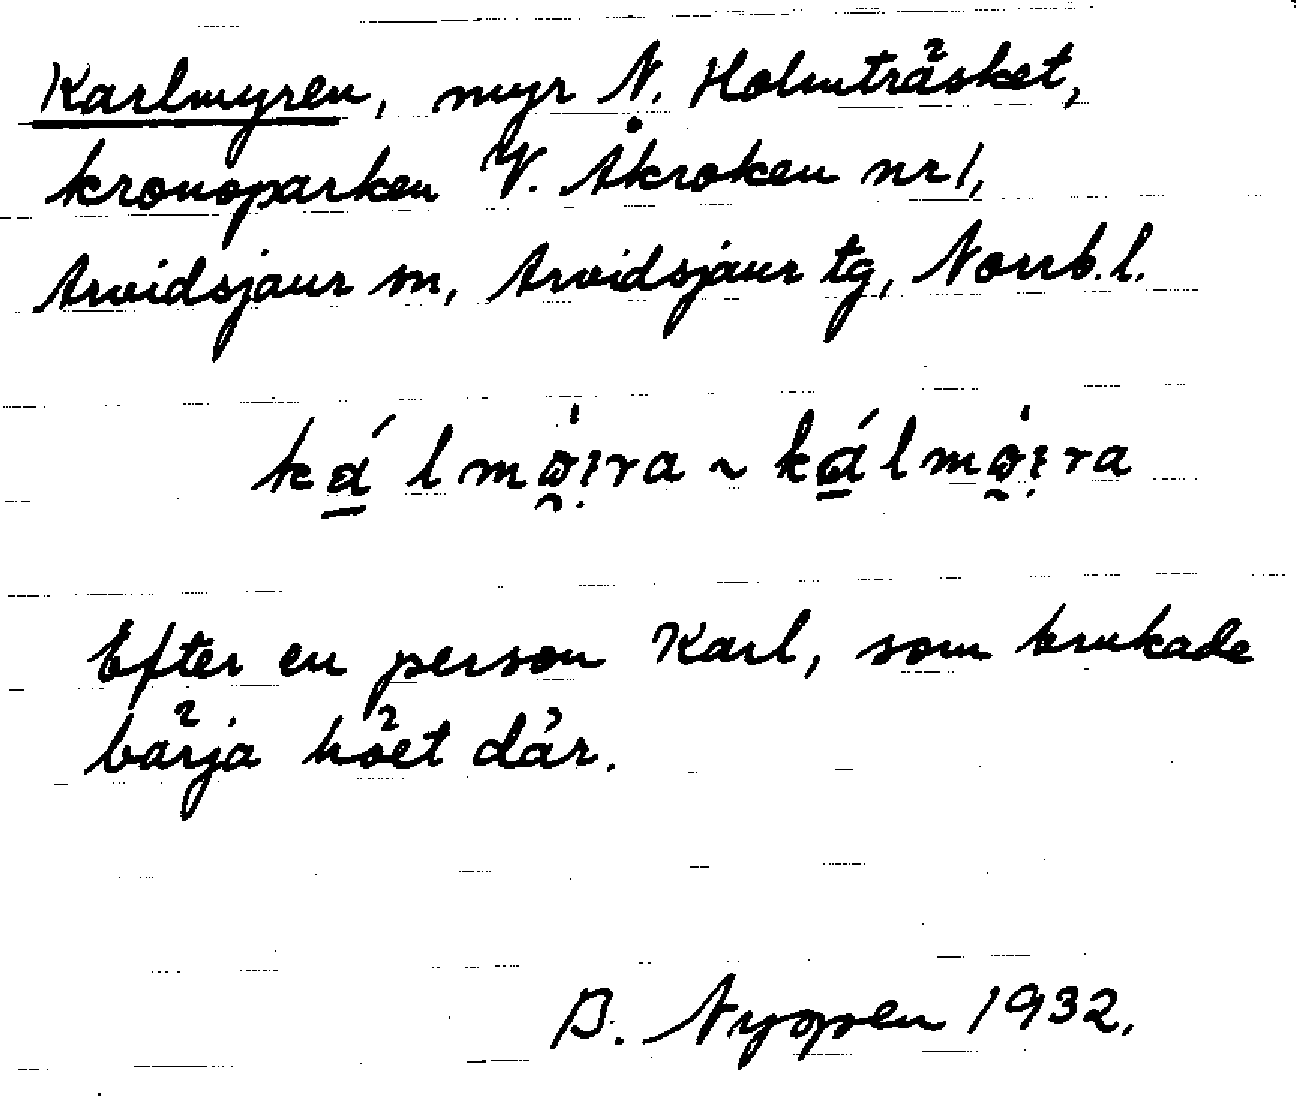 Karlmyren, myr N. Holmträsket,
kronoparken V. Åkroken nr 1,
Arvidsjaur sn, Arvidsjaur tg, Norrb.l.
Efter en person Karl, som brukade
bärja höet där.
B. Nygren 1932.